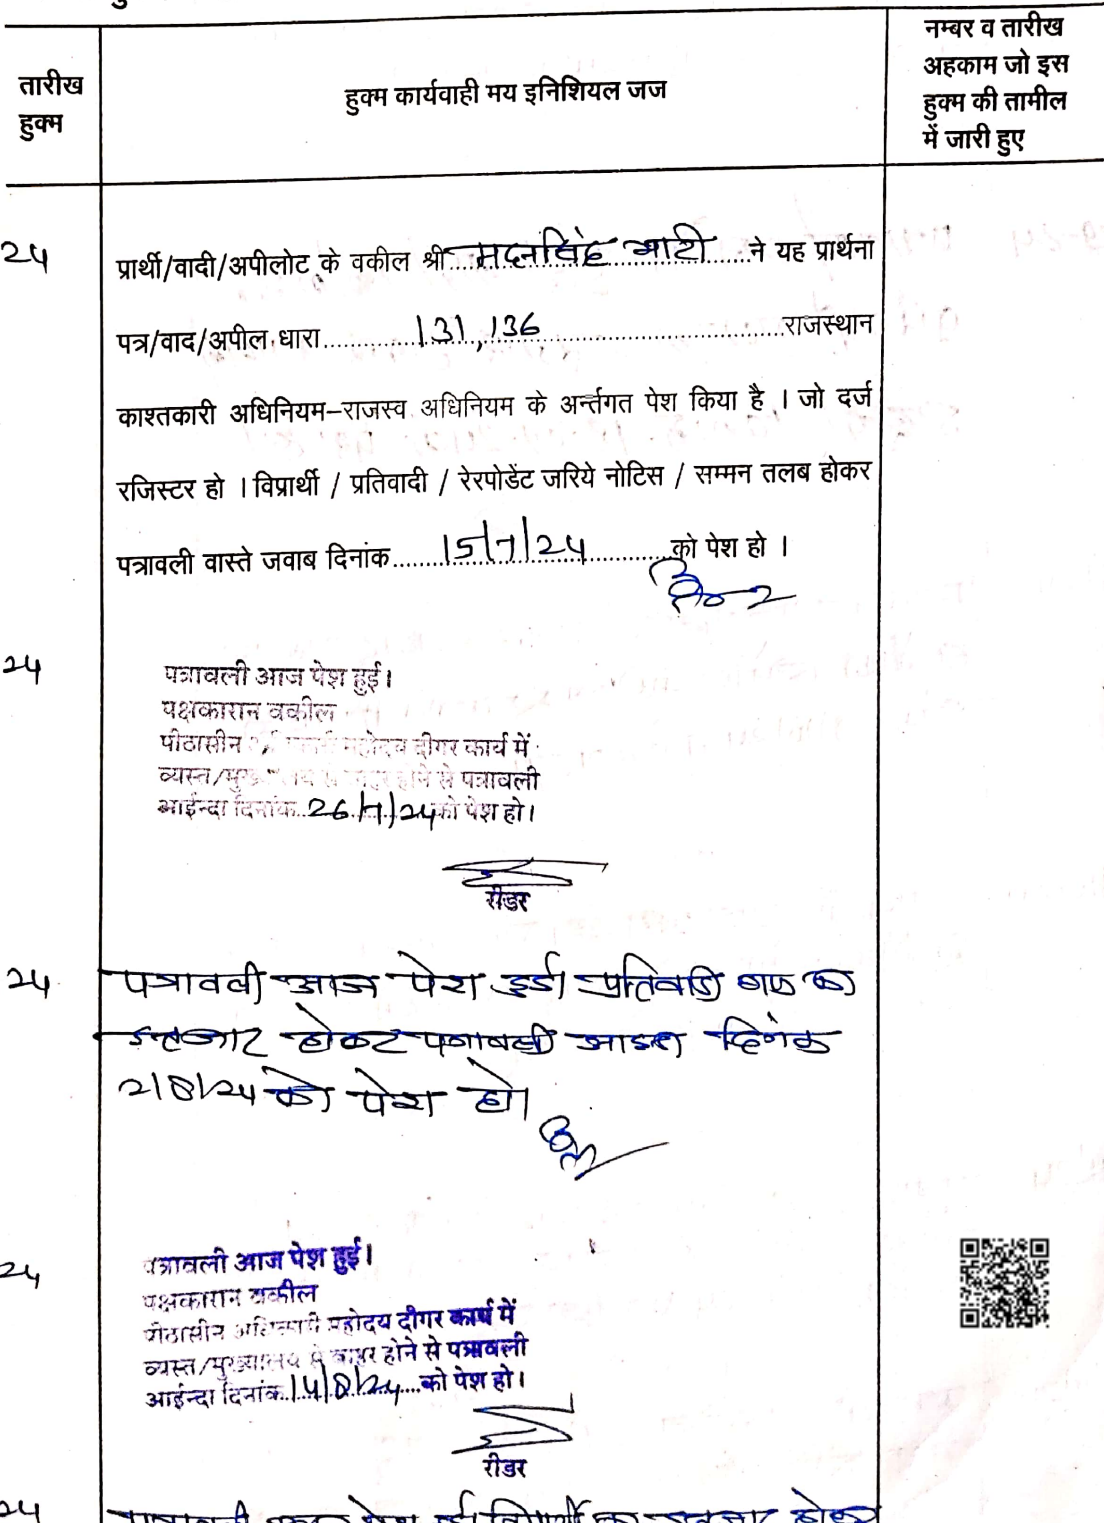 तारीख
हुक्म
हुक्म कार्यवाही मय इनिशियल जज
नम्बर व तारीख
अहकाम जो इस
हुक्म की तामील
में जारी हुए
24
प्रार्थी/वादी/अपीलोट के वकील श्री....मदनसिंह भाटी.....ने यह प्रार्थना
पत्र/वाद/अपील धारा............131, 136..............................राजस्थान
काश्तकारी अधिनियम–राजस्व अधिनियम के अर्न्तगत पेश किया है । जो दर्ज
रजिस्टर हो । विप्रार्थी / प्रतिवादी / रेरपोडेंट जरिये नोटिस / सम्मन तलब होकर
पत्रावली वास्ते जवाब दिनांक......15/7/24..........को पेश हो ।
24
पत्रावली आज पेश हुई।
पक्षकारान वकील
पीठासीन महोदय दीगर कार्य में
व्यस्त/मुख्यालय से बाहर होने से पत्रावली
आईन्दा दिनांक..26/7/24को पेश हो।
रीडर
24
पत्रावली आज पेश हुई। प्रतिवादी का
इन्तजार होकर पत्रावली दिनांक
2/8/24 को पेश हो।
24
पत्रावली आज पेश हुई।
पक्षकारान वकील
पीठासीन अधिकारी महोदय दीगर कार्य में
व्यस्त/मुख्यालय से बाहर होने से पत्रावली
आईन्दा दिनांक..14/8/24....को पेश हो।
रीडर
24